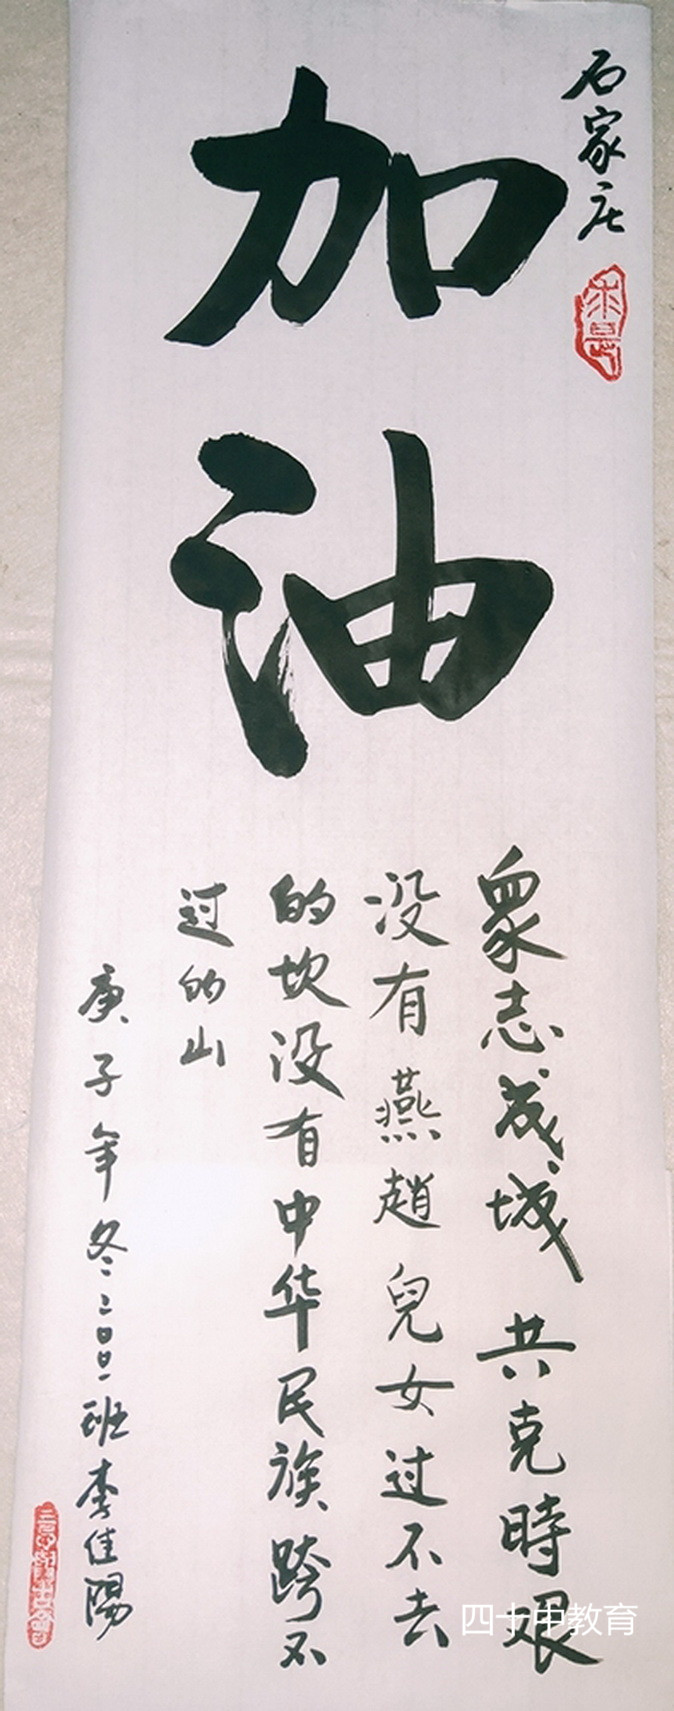 石家庄
加油
眾志成城 共克時艰
没有燕趙兒女过不去
的坎没有中华民族跨不
过的山
庚子年冬二〇〇一班李佳陽
四十中教育